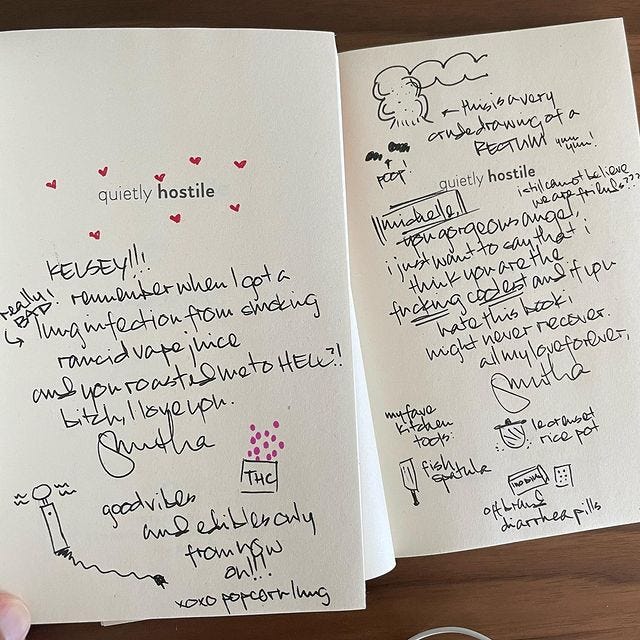 quietly hostile
KELSEY!!!
remember when I got a
really!
BAD
lung infection from smoking
rancid vape juice
and you roasted me to HELL?!
bitch, I love you.
Smntha
THC
good vibes
and edibles only
from now
on!!!
xoxo popcorn lung
this is a very
crude drawing of a
RECTUM yum
yum!
poop!
quietly hostile
i still cannot believe
we are friends???
michelle,
you gorgeous angel,
i just want to say that i
think you are the
fucking coolest and if you
hate this book i
might never recover.
all my love forever,
Smntha
my fave
kitchen
tools:
le creuset
rice pot
fish
spatula
off brand
diarrhea pills